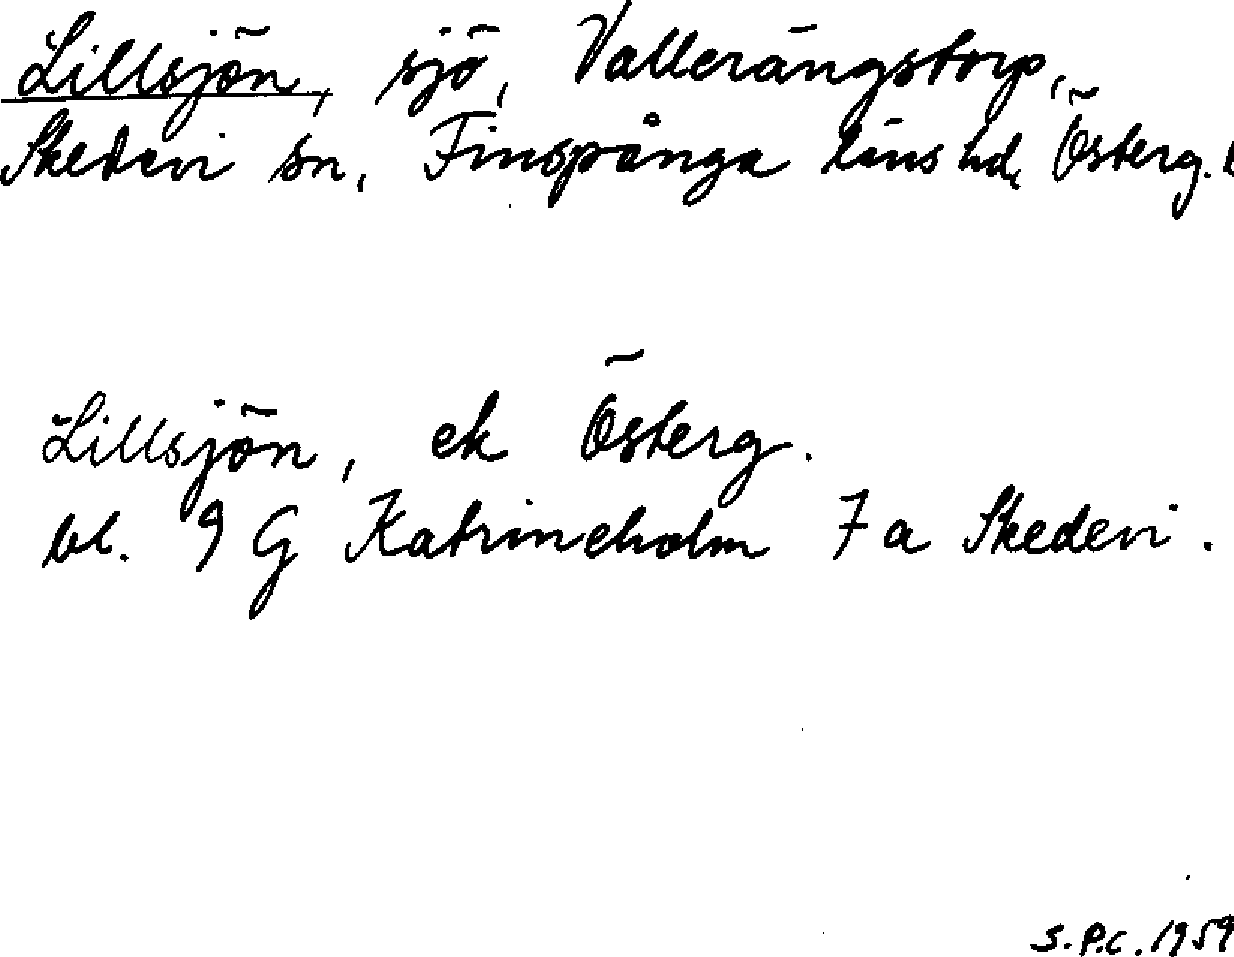 Lillsjön, sjö, Vallerängstorp,
Skedevi sn, Finspånga läns hd, Österg. l
Lillsjön, ek Österg.
bl. 9 G Katrineholm 7 a Skedevi.
S.P.C. 1959